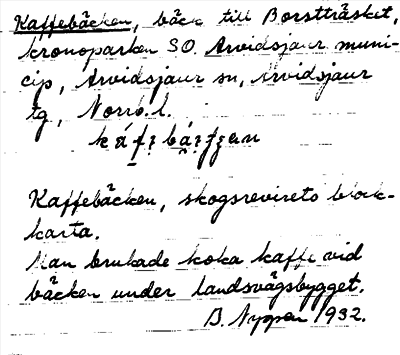 Kaffebäcken, bäck till Borstträsket,
kronoparken SO. Arvidsjaur muni-
cip, Arvidsjaur sn, Arvidsjaur
tg, Norrb. l.
Kaffebäcken, skogsrevirets block-
karta.
Man brukade koka kaffe vid
bäcken under landsvägsbygget.
B. Nyppen 1932.